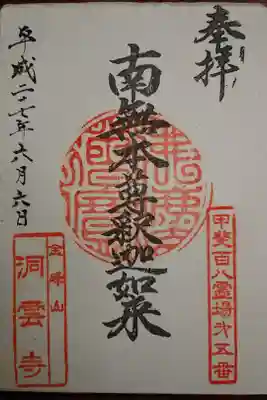 奉拝
甲斐百八霊場㐧五番
南無本尊釋迦如来
平成二十七年六月六日
洞雲寺